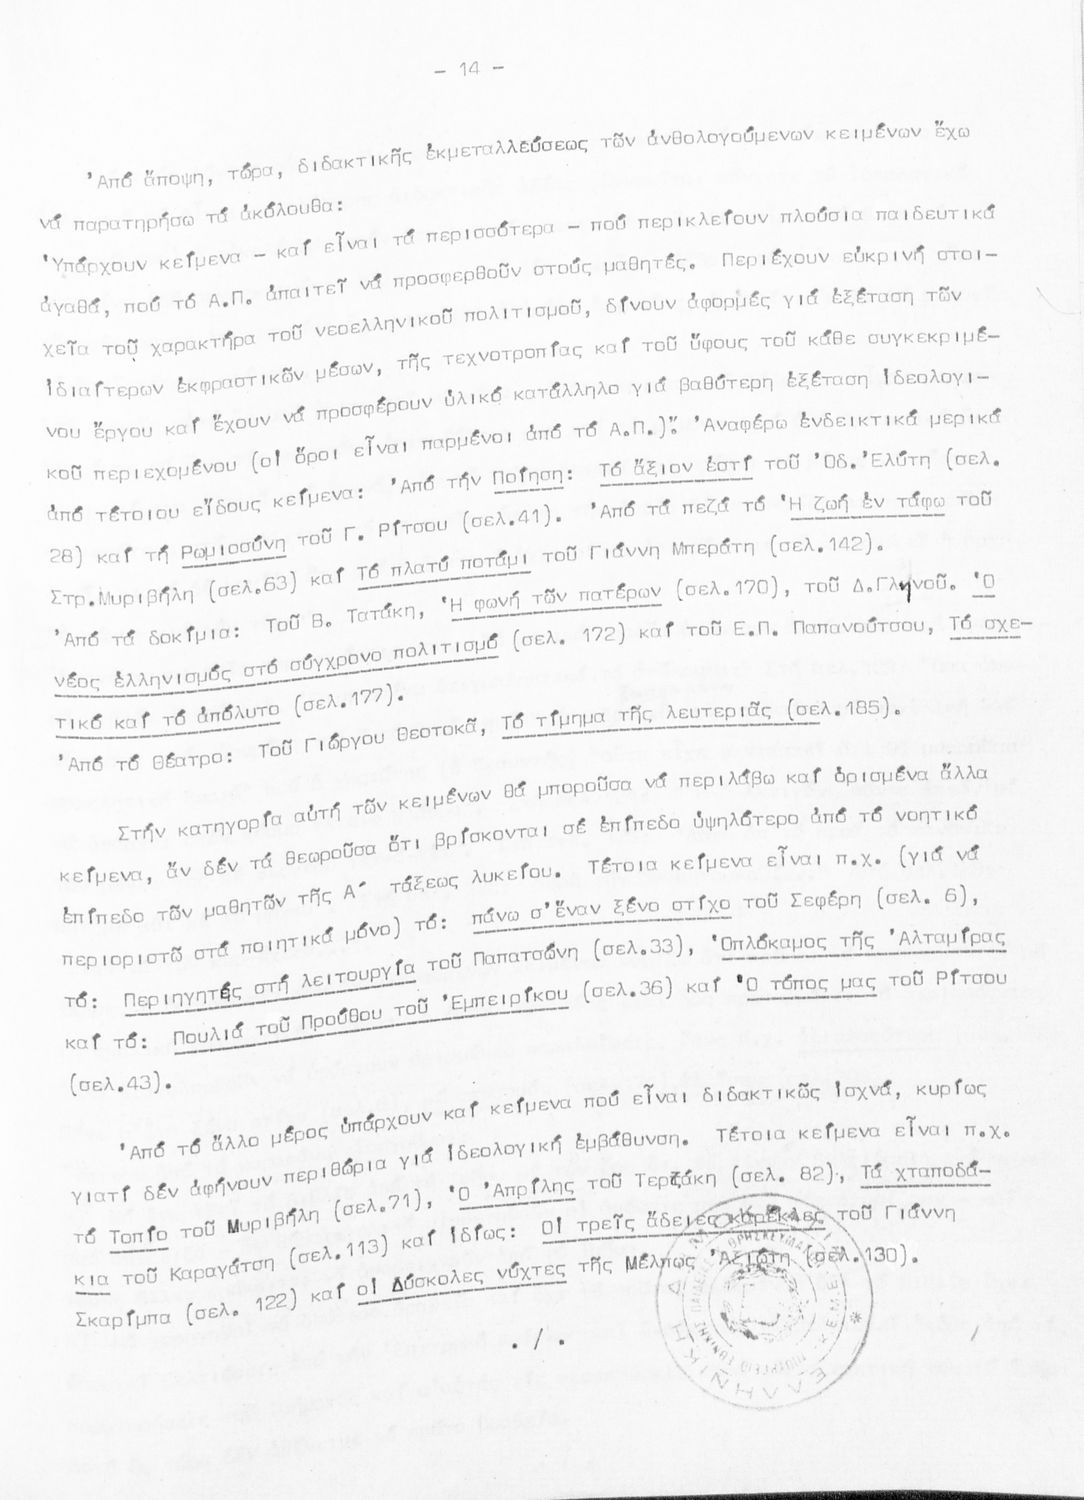 - 14 -
'Από ἄποψη, τώρα, διδακτικῆς ἐκμεταλλεύσεως τῶν ἀνθολογούμενων κειμένων ἔχω
νά παρατηρήσω τά ἀκόλουθα:
'Υπάρχουν κείμενα - καί εἶναι τά περισσότερα - πού περικλείουν πλούσια παιδευτικά
ἀγαθά, πού τό Α.Π. ἀπαιτεῖ νά προσφερθοῦν στούς μαθητές. Περιέχουν εὐκρινή στοι-
χεῖα τοῦ χαρακτήρα τοῦ νεοελληνικοῦ πολιτισμοῦ, δίνουν ἀφορμές γιά ἐξέταση τῶν
ἰδιαίτερων ἐκφραστικῶν μέσων, τῆς τεχνοτροπίας καί τοῦ ὕφους τοῦ κάθε συγκεκριμέ-
νου ἔργου καί ἔχουν νά προσφέρουν ὑλικό κατάλληλο γιά βαθύτερη ἐξέταση ἰδεολογι-
κοῦ περιεχομένου (οἱ ὅροι εἶναι παρμένοι ἀπό τό Α.Π.)". 'Αναφέρω ἐνδεικτικά μερικά
ἀπό τέτοιου εἴδους κείμενα: 'Από τήν Ποίηση: Τό ἄξιον ἐστί τοῦ 'Οδ.'Ελύτη (σελ.
28) καί τή Ρωμιοσύνη τοῦ Γ. Ρίτσου (σελ.41). 'Από τά πεζά τό 'Η ζωή ἐν τάφω τοῦ
Στρ.Μυριβήλη (σελ.63) καί Τό πλατύ ποτάμι τοῦ Γιάννη Μπεράτη (σελ.142).
'Από τά δοκίμια: Τοῦ Β. Τατάκη, 'Η φωνή τῶν πατέρων (σελ.170), τοῦ Δ.Γληνοῦ. 'Ο
νέος ἑλληνισμός στό σύγχρονο πολιτισμό (σελ. 172) καί τοῦ Ε.Π. Παπανούτσου, Τό σχε-
τικό καί τό ἀπόλυτο (σελ.177).
'Από τό Θέατρο: Τοῦ Γιώργου Θεοτοκᾶ, Τό τίμημα τῆς λευτεριᾶς (σελ.185).
Στήν κατηγορία αὐτή τῶν κειμένων θά μποροῦσα νά περιλάβω καί ὁρισμένα ἄλλα
κείμενα, ἄν δέν τά θεωροῦσα ὅτι βρίσκονται σέ ἐπίπεδο ὑψηλότερο ἀπό τό νοητικό
ἐπίπεδο τῶν μαθητῶν τῆς Α΄ τάξεως λυκείου. Τέτοια κείμενα εἶναι π.χ. (γιά νά
περιοριστῶ στά ποιητικά μόνο) τό: πάνω σ'ἕναν ξένο στίχο τοῦ Σεφέρη (σελ. 6),
τό: Περιηγητές στή λειτουργία τοῦ Παπατσώνη (σελ.33), 'Οπλόκαμος τῆς 'Αλταμίρας
καί τό: Πουλιά τοῦ Προύθου τοῦ 'Εμπειρίκου (σελ.36) καί 'Ο τόπος μας τοῦ Ρίτσου
(σελ.43).
'Από τό ἄλλο μέρος ὑπάρχουν καί κείμενα πού εἶναι διδακτικῶς ἰσχνά, κυρίως
γιατί δέν ἀφήνουν περιθώρια γιά ἰδεολογική ἐμβάθυνση. Τέτοια κείμενα εἶναι π.χ.
τό Τοπίο τοῦ Μυριβήλη (σελ.71), 'Ο 'Απρίλης τοῦ Τερζάκη (σελ. 82), Τά χταποδά-
κια τοῦ Καραγάτση (σελ.113) καί ἰδίως: Οἱ τρεῖς ἄδειες καρέκλες τοῦ Γιάννη
Σκαρίμπα (σελ. 122) καί οἱ Δύσκολες νύχτες τῆς Μέλπως 'Αξιώτη (σελ.130).
./.
ΕΛΛΗΝΙΚΗ ΔΗΜΟΚΡΑΤΙΑ
ΥΠΟΥΡΓΕΙΟ ΕΘΝΙΚΗΣ ΠΑΙΔΕΙΑΣ ΘΡΗΣΚΕΥΜΑΤΩΝ
Κ.Ε.Μ.Ε.